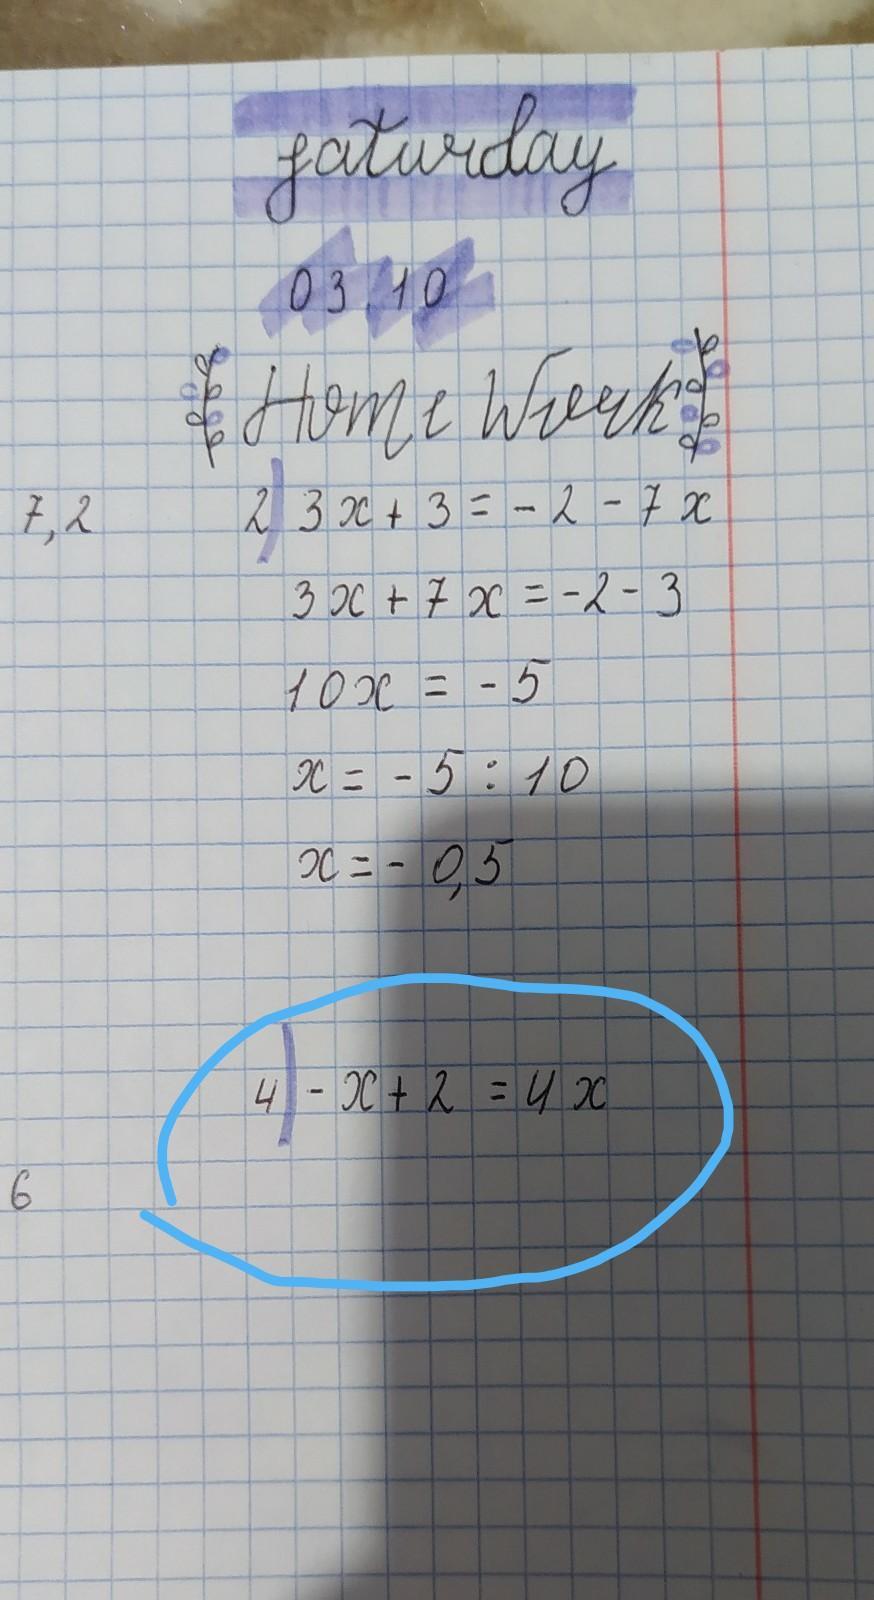 Saturday
03.10
Home Work
7,2 2) 3x + 3 = - 2 - 7x
3x + 7x = -2 - 3
10x = - 5
x = - 5 : 10
x = - 0,5
4) - x + 2 = 4x
6